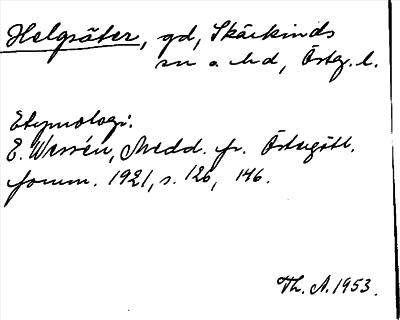 Helgsäter, gd, Skärkinds
sn o. hd, Östg. l.
Etymologi:
E. Wessén, Medd. fr. Östergötl.
fornm. 1921, s. 126, 146.
Th. A. 1953.